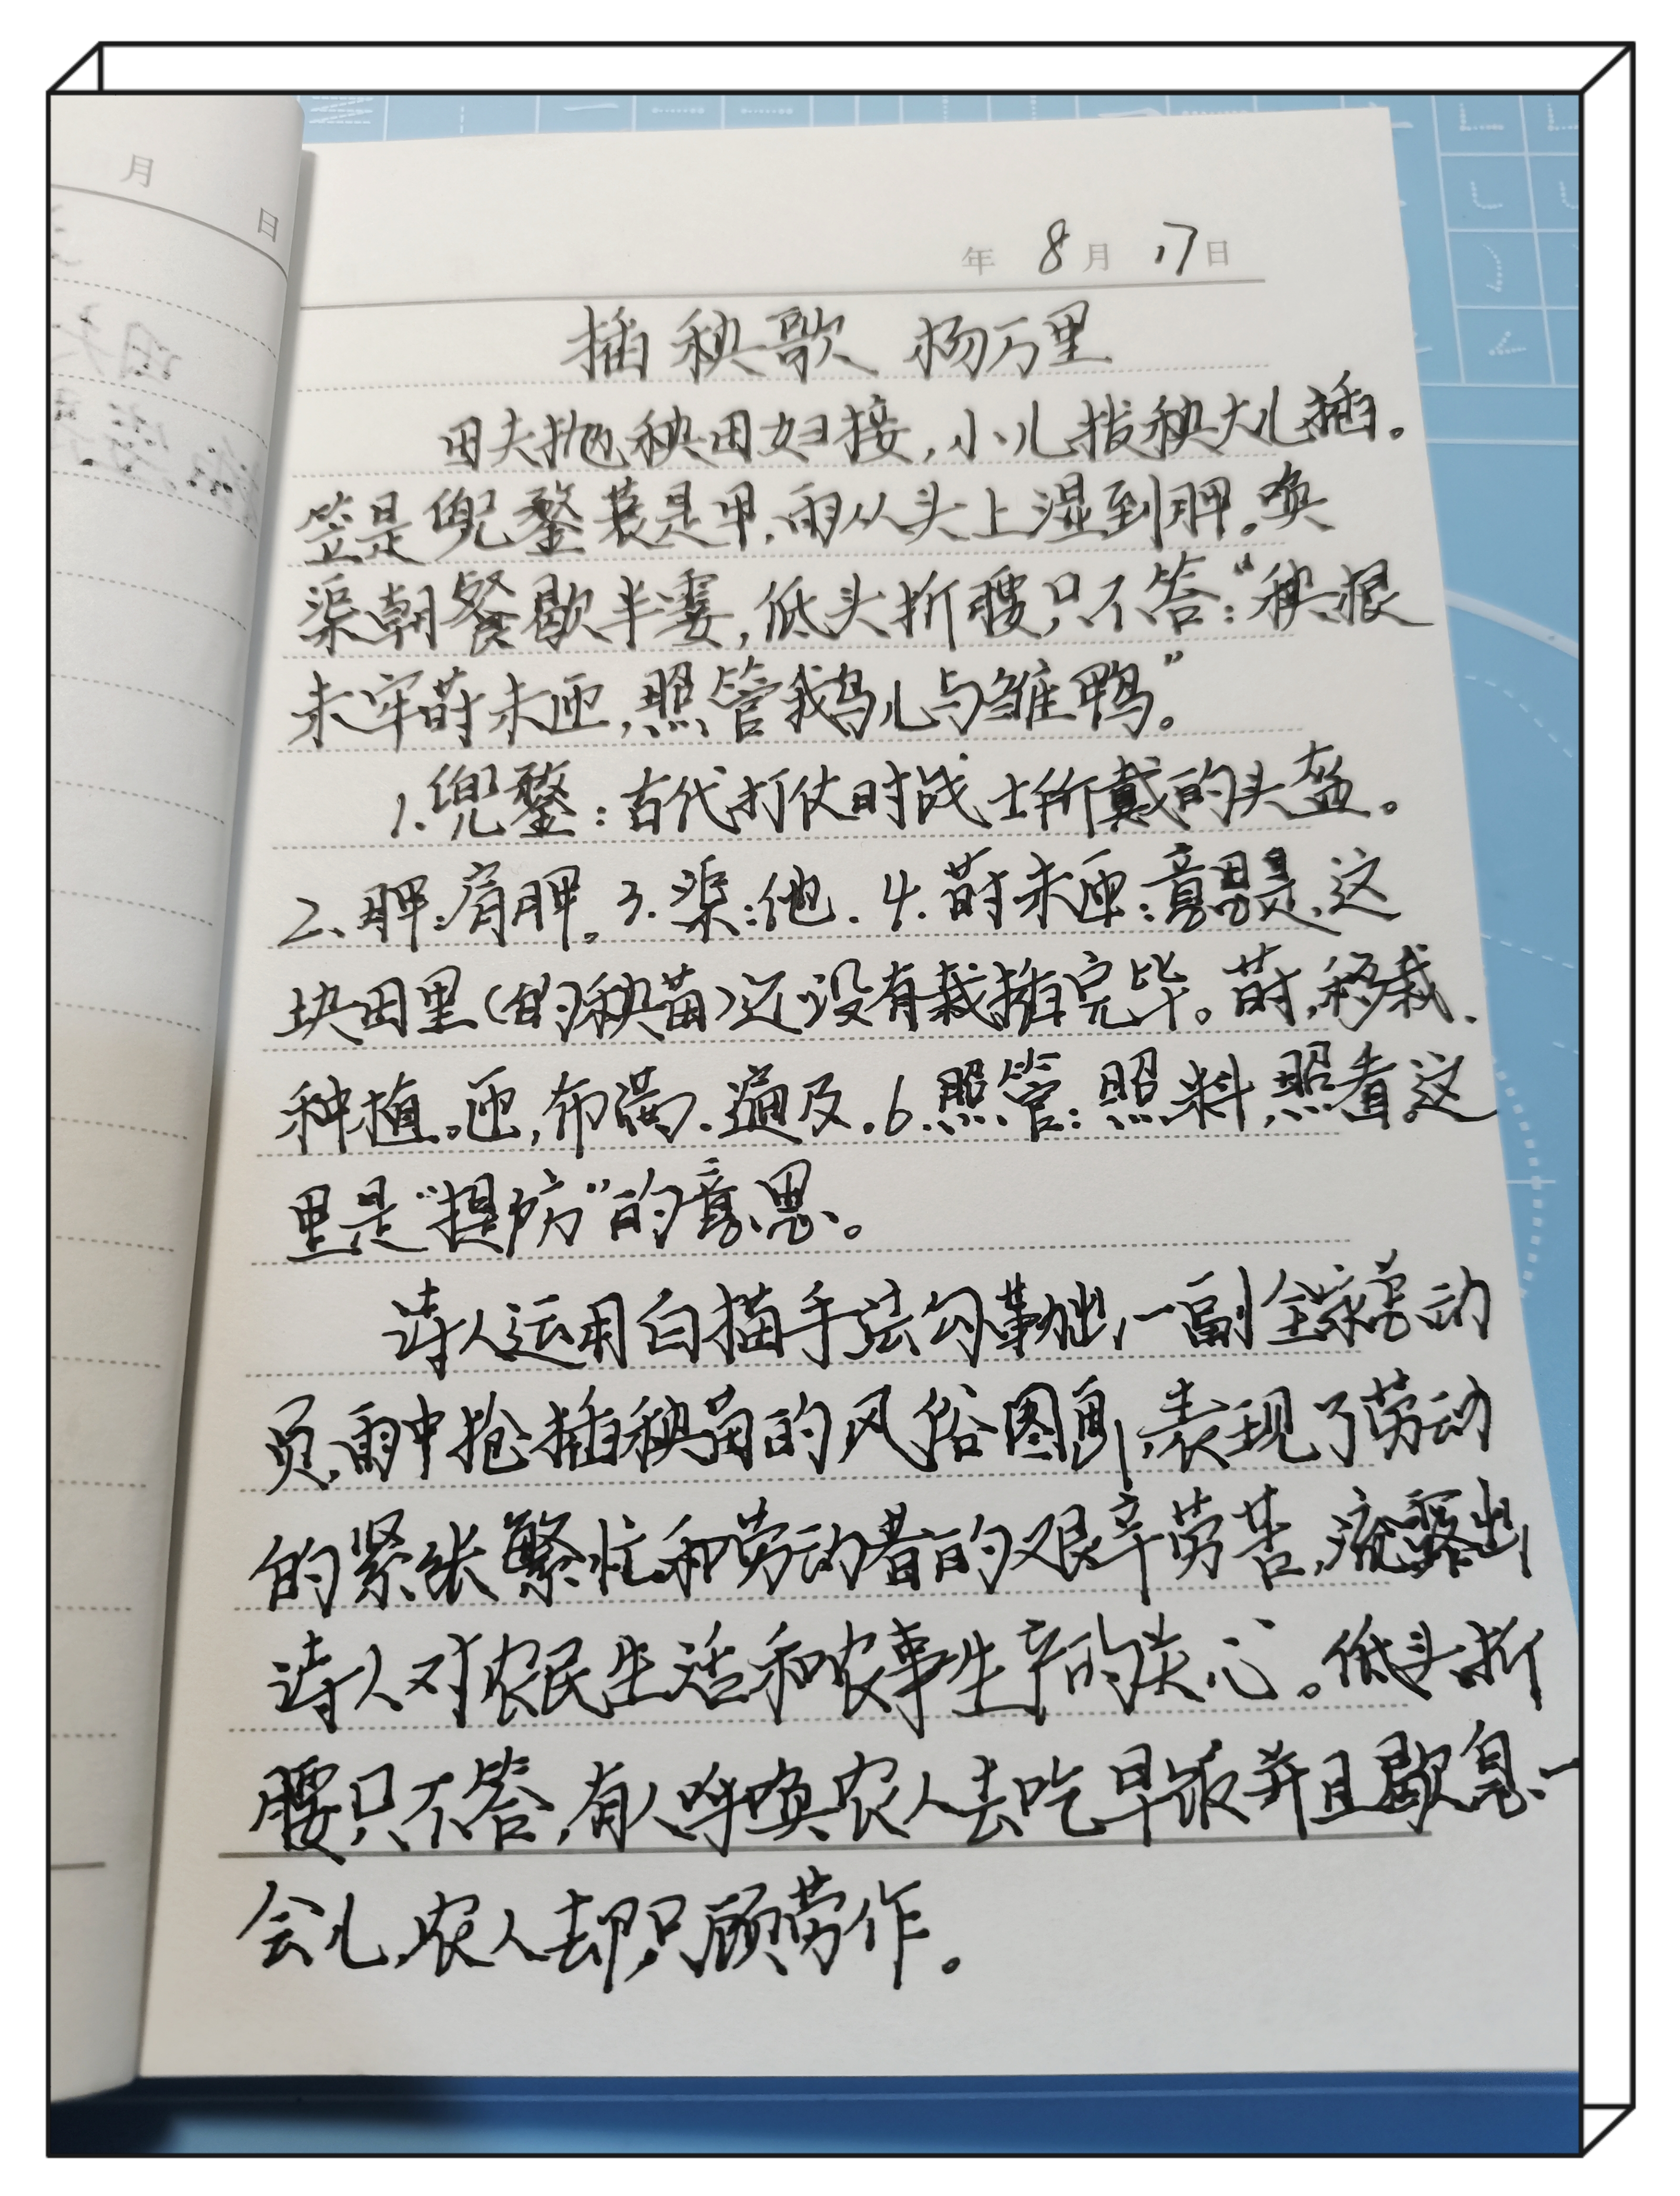 月
日
年 8月 17日
插秧歌 杨万里
田夫抛秧田妇接,小儿拔秧大儿插。
笠是兜鍪蓑是甲,雨从头上湿到胛。唤
渠朝餐歇半霎,低头折腰只不答:“秧根
未牢莳未匝,照管鹅儿与雏鸭。”
1.兜鍪:古代打仗时战士所戴的头盔。
2、胛:肩胛。3.渠:他.4.莳未匝:意思是,这
块田里(的秧苗)还没有栽插完毕。莳,移栽、
种植。匝,布满、遍及.6.照管:照料,照看,这
里是“提防”的意思。
诗人运用白描手法勾勒出一副全家劳动
员,雨中抢插秧苗的风俗图画,表现了劳动
的紧张繁忙和劳动者的艰辛劳苦,流露出
诗人对农民生活和农事生产的关心。低头折
腰只不答,有人呼唤农人去吃早饭并且歇息一
会儿,农人却只顾劳作。